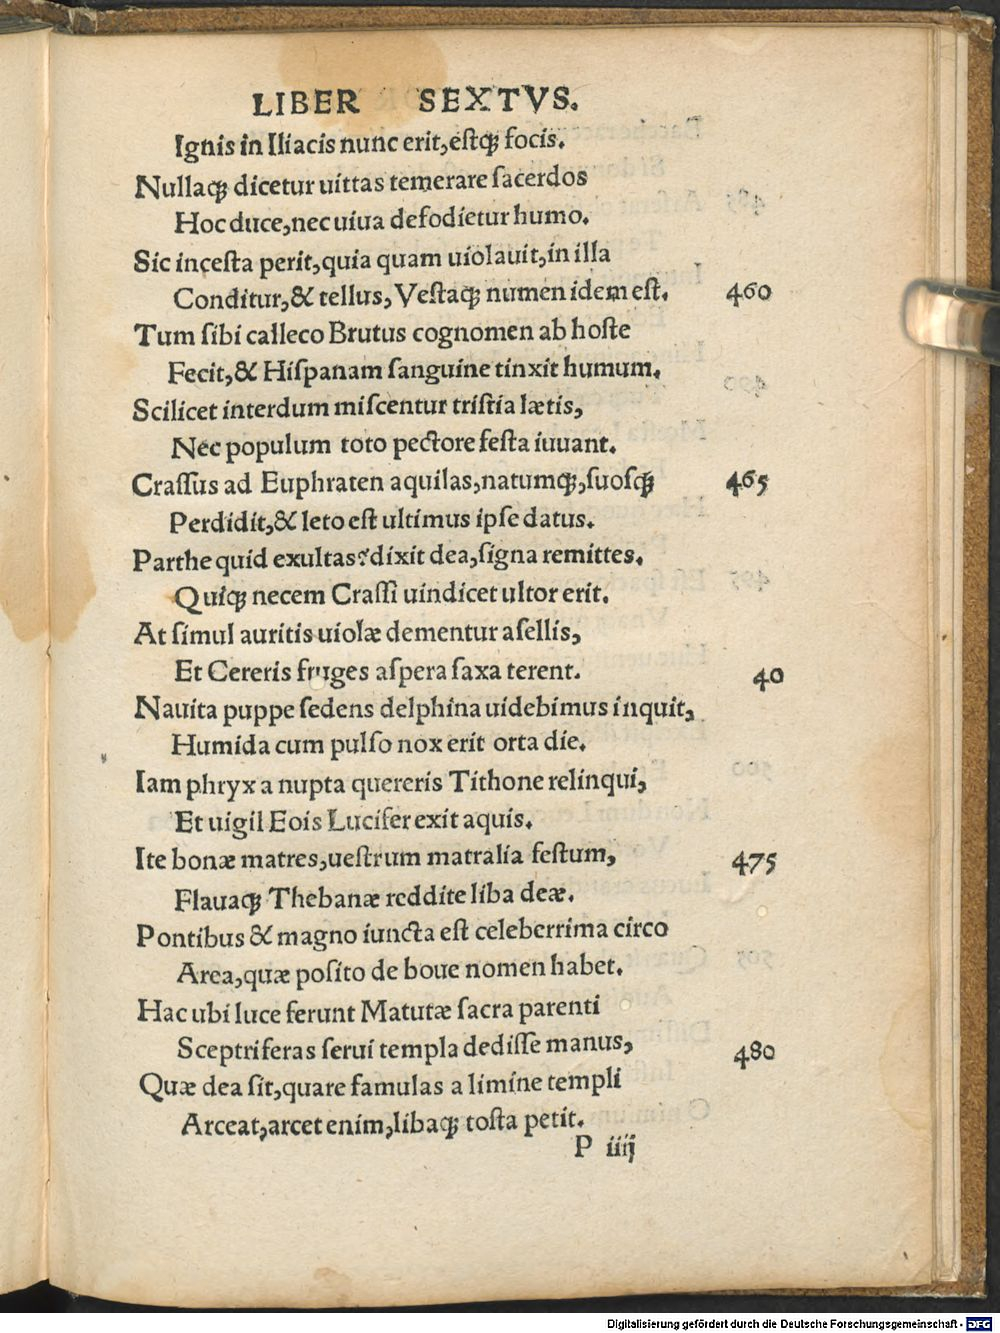 LIBER SEXTVS.
Ignis in Iliacis nunc erit, estqꝫ focis.
Nullaqꝫ dicetur uittas temerare sacerdos
Hoc duce, nec uiua defodietur humo.
Sic incesta perit, quia quam uiolauit, in illa
Conditur, & tellus, Vestaqꝫ numen idem est. 460
Tum sibi calleco Brutus cognomen ab hoste
Fecit, & Hispanam sanguine tinxit humum.
Scilicet interdum miscentur tristia lætis,
Nec populum toto pectore festa iuuant.
Crassus ad Euphraten aquilas, natumqꝫ, suosqꝫ 465
Perdidit, & leto est ultimus ipse datus.
Parthe quid exultas? dixit dea, signa remittes.
Quiqꝫ necem Crassi uindicet ultor erit.
At simul auritis uiolæ dementur asellis,
Et Cereris fruges aspera saxa terent. 40
Nauita puppe sedens delphina uidebimus inquit,
Humida cum pulso nox erit orta die.
Iam phryx a nupta quereris Tithone relinqui,
Et uigil Eois Lucifer exit aquis.
Ite bonæ matres, uestrum matralia festum, 475
Flauaqꝫ Thebanæ reddite liba deæ.
Pontibus & magno iuncta est celeberrima circo
Area, quæ posito de boue nomen habet.
Hac ubi luce ferunt Matutæ sacra parenti
Sceptriferas serui templa dedisse manus, 480
Quæ dea sit, quare famulas a limine templi
Arceat, arcet enim, libaqꝫ tosta petit.
P iiij
Digitalisierung gefördert durch die Deutsche Forschungsgemeinschaft - DFG